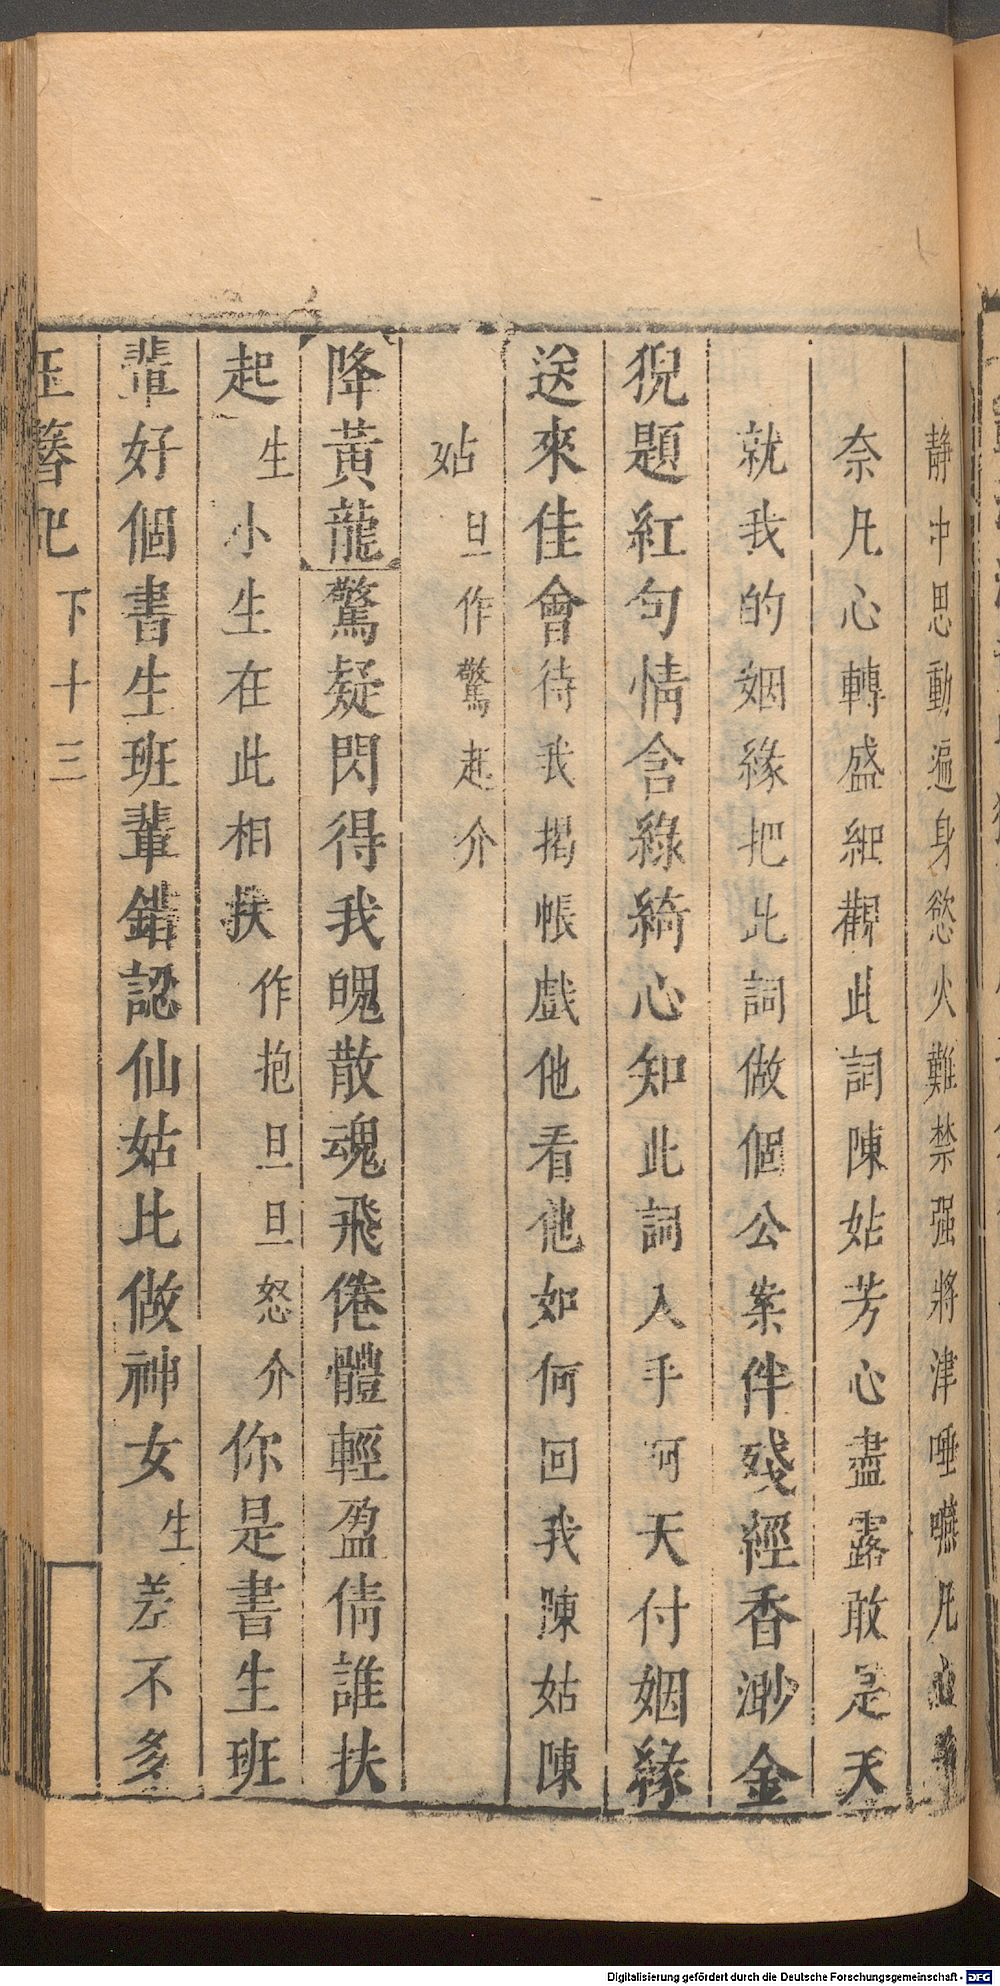 靜中思動遍身慾火難禁强將津唾嚥凡心
奈凡心轉盛細觀此詞陳姑芳心盡露敢是天
就我的姻緣把此詞做個公案伴殘經香渺金
猊題紅句情含綠綺心知此詞入手可天付姻緣
送來佳會待我揭帳戲他看他如何回我陳姑陳
姑旦作驚起介
降黃龍驚疑閃得我魄散魂飛倦體輕盈倩誰扶
起生小生在此相扶作抱旦旦怒介你是書生班
輩好個書生班輩錯認仙姑比做神女生差不多
玉簪記 下 十三
Digitalisierung gefördert durch die Deutsche Forschungsgemeinschaft - DFG